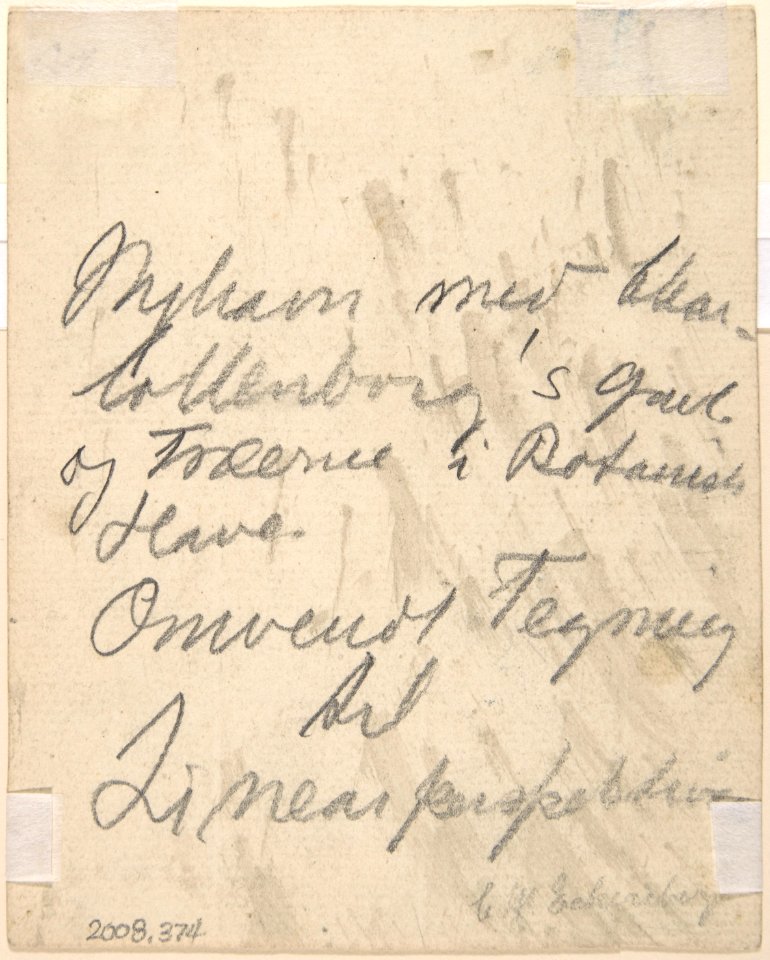 Nyhavn med Char-
lottenborg's Gavl
og Træerne i Botanisk
Have.
Omvendt Tegning
til
Linearperspektiv
C W Eckersberg
2008.374